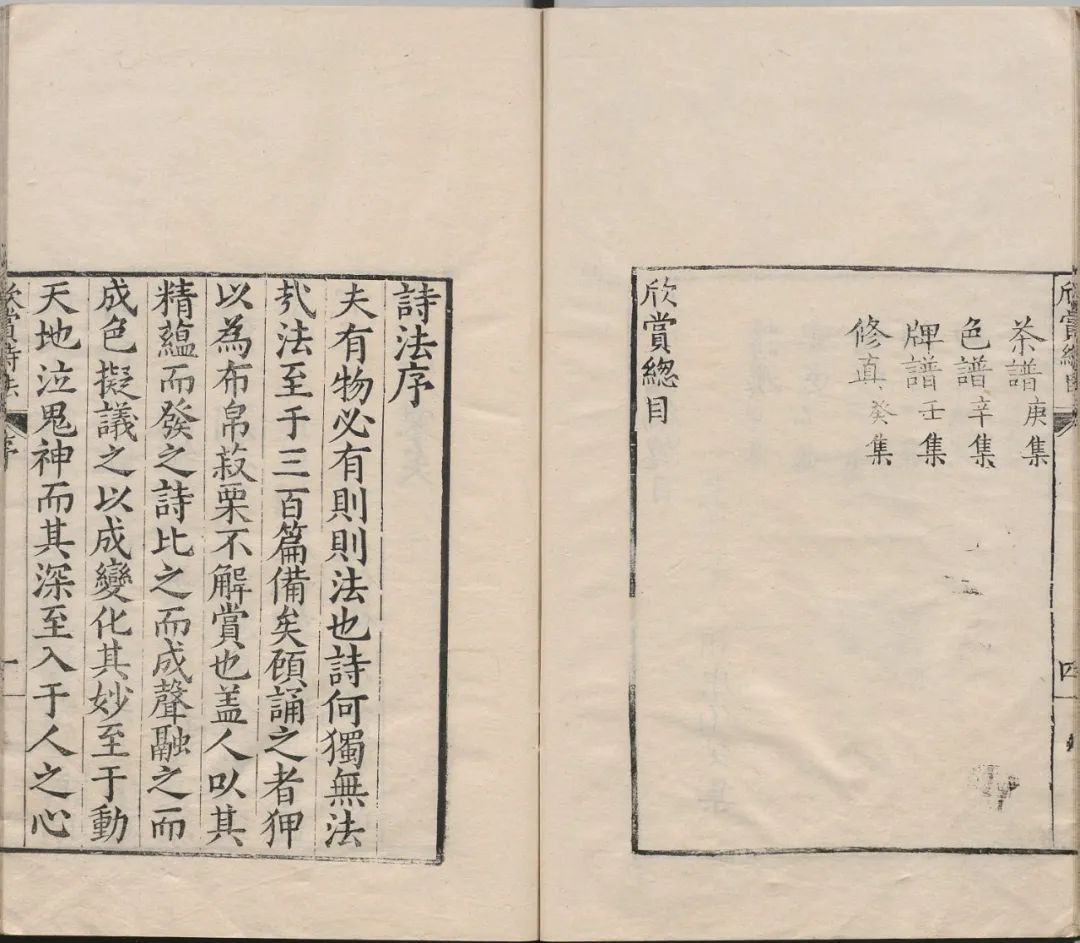 欣賞總目
四
茶譜庚集
色譜辛集
牌譜壬集
修真癸集
欣賞總目
詩法序
夫有物必有則則法也詩何獨無法
㢤法至于三百篇備矣頋誦之者狎
以為布帛菽栗不解賞也盖人㕥其
精蘊而發之詩比之而成聲融之而
成色擬議之以成變化其妙至于動
天地泣鬼神而其深至入于人之心
欣賞詩法
序
一